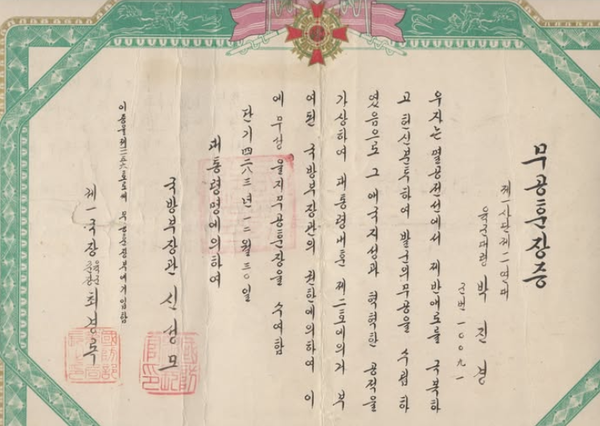 무공훈장증
제一사단제一二연대
박진봉
군번 一〇〇九一
우자는 멸공전선에서 제반애로를 극복하
고 헌신분투하여 발군의무공을 수립하
였음으로 그 애국지성과 혁혁한 공적을
가상하여 대통령내훈 제二호에의거 부
여된 국방부장관의 권한에의하여 이
에 무성 을지무공훈장을 수여함
단기四二八三년 一二월三〇일
대통령명에의하여
국방부장관 신성모
무공훈장부에기입함
제一국장 육군준장 최경록